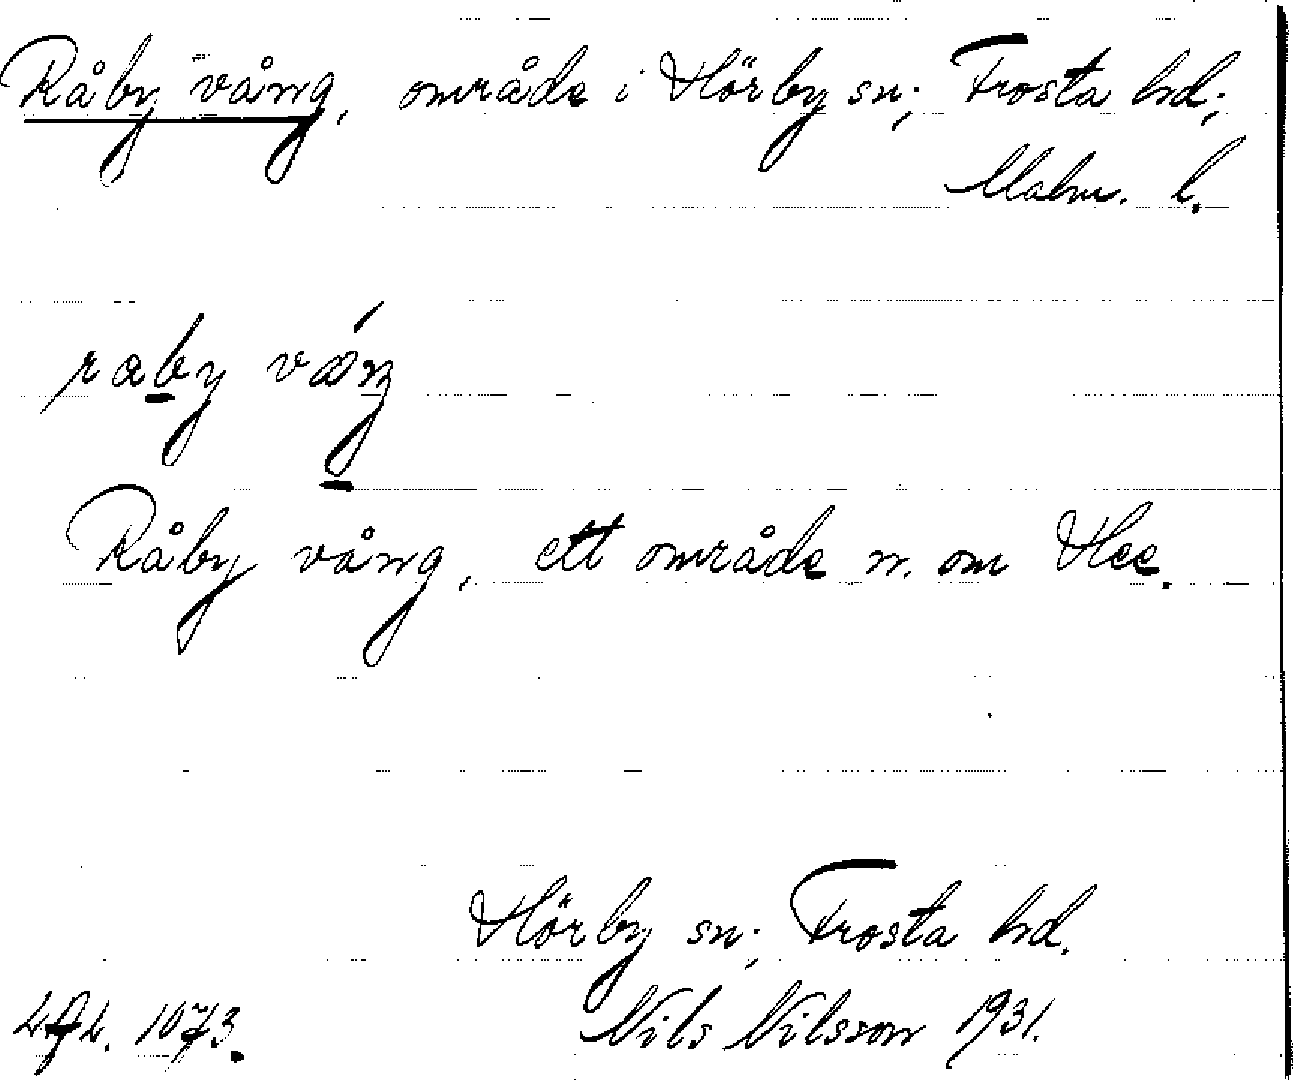 Råby vång, område i Hörby sn; Frosta hd;
Malm. l.
råby våŋ
Råby vång, ett område n. om Hee.
Hörby sn; Frosta hd.
Nils Nilsson 1931.
1073.